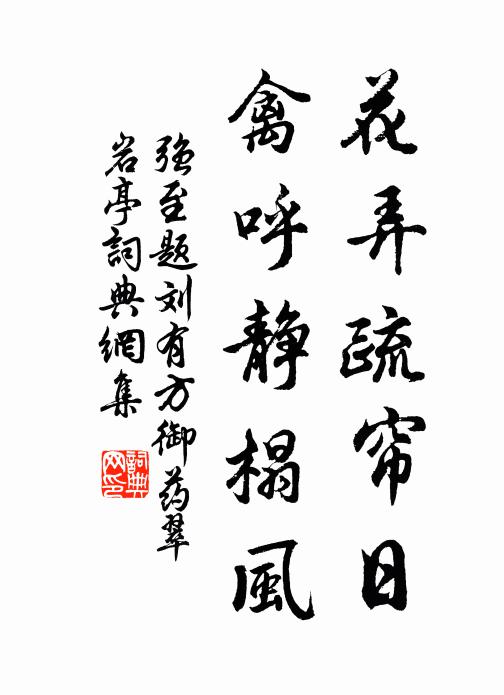 花弄疏帘日
禽呼静榻風
强至题刘有方御药翠
岩亭詞典網集
詞典網印